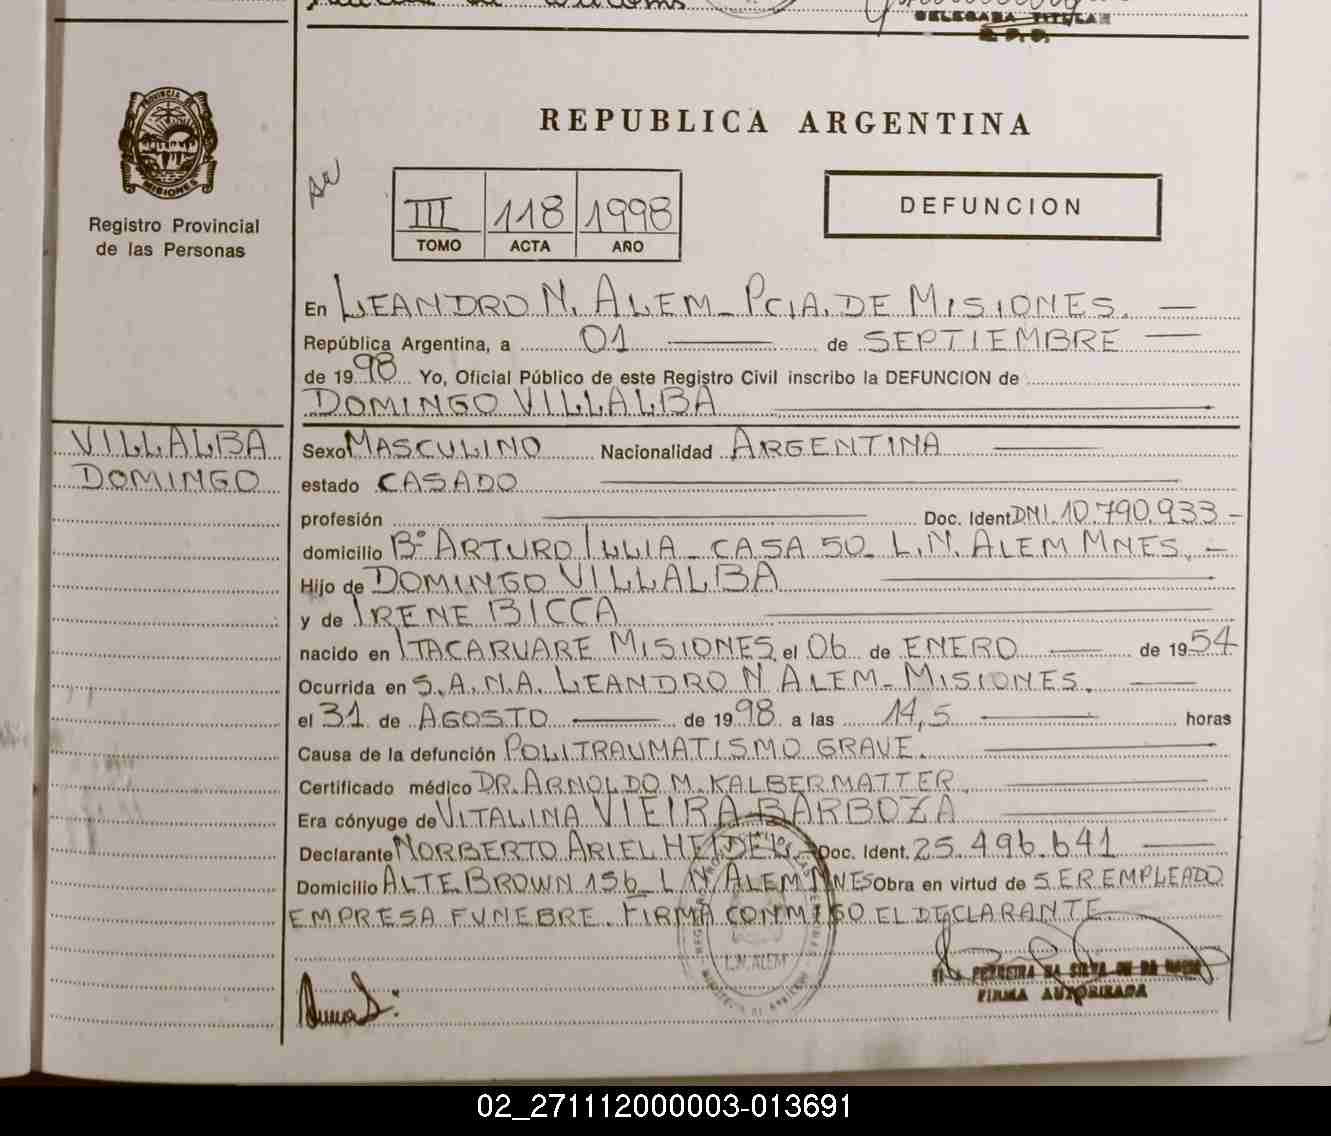 DELEGADA TITULAR
R. P. P.
PROVINCIA DE
MISIONES
Registro Provincial
de las Personas
REPUBLICA ARGENTINA
III 118 1998
TOMO ACTA AÑO
DEFUNCION
En LEANDRO N. ALEM - PCIA. DE MISIONES. —
República Argentina, a 01 — de SEPTIEMBRE —
de 1998 Yo, Oficial Público de este Registro Civil inscribo la DEFUNCION de
DOMINGO VILLALBA
VILLALBA
DOMINGO
Sexo MASCULINO Nacionalidad ARGENTINA
estado CASADO
profesión — Doc. Ident. DNI. 10.790.933 -
domicilio Bº ARTURO ILLIA - CASA 50 - L.N. ALEM MNES. -
Hijo de DOMINGO VILLALBA
y de IRENE BICCA
nacido en ITACARUARE MISIONES, el 06 de ENERO — de 1954
Ocurrida en S.A.N.A. LEANDRO N ALEM - MISIONES. —
el 31 de AGOSTO — de 1998 a las 14,5 — horas
Causa de la defunción POLITRAUMATISMO GRAVE.
Certificado médico DR. ARNOLDO M. KALBERMATTER.
Era cónyuge de VITALINA VIEIRA BARBOZA
Declarante NORBERTO ARIEL HEIDEL - Doc. Ident. 25.496.641 —
Domicilio ALTE. BROWN 156 - L.N. ALEM MNES Obra en virtud de SER EMPLEADO
EMPRESA FUNEBRE. FIRMA CONMIGO EL DECLARANTE
L.N. ALEM
FERREIRA DA SILVA DE DA ROSA
FIRMA AUTORIZADA
02_271112000003-013691